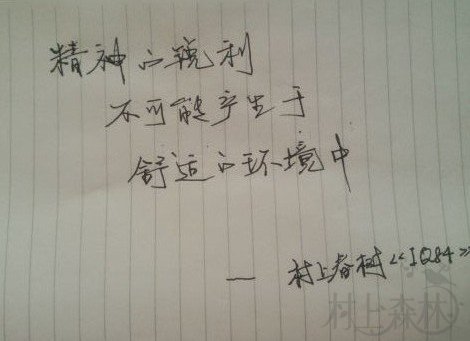 精神的锐利
不可能产生于
舒适的环境中
— 村上春树《1Q84》
村上森林